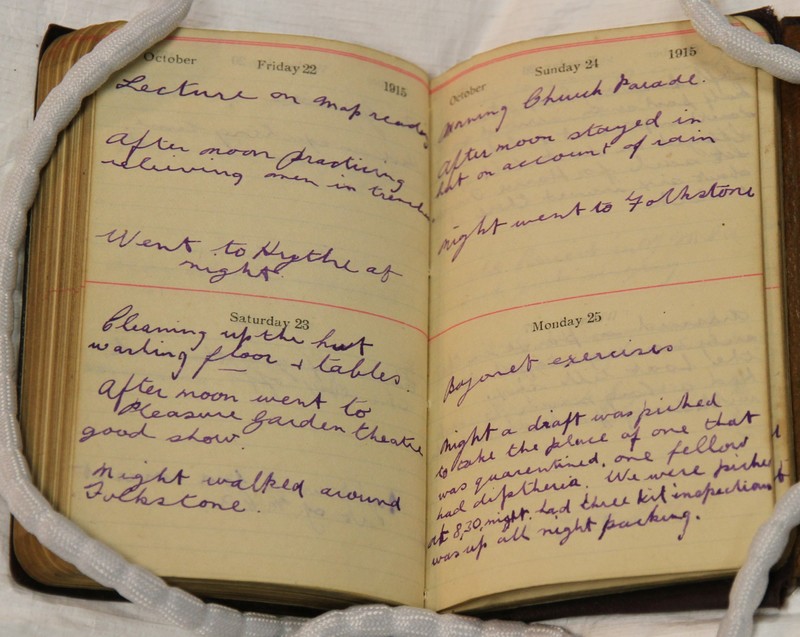 October Friday 22 1915
Lecture on map reading
After noon practicing
releiving men in trenches
Went to Hythe at
night.
Saturday 23
Cleaning up the hut
washing floor + tables.
After noon went to
Pleasure Garden theatre
good show.
Night walked around
Folkstone.
October Sunday 24 1915
Morning Church Parade.
After noon stayed in
hut on account of rain
Night went to Folkstone
Monday 25
Bayonet exercises
Night a draft was picked
to take the place of one that
was quarentined, one fellow
had diptheria. We were picked
at 8,30, night. had three kit inspections
was up all night packing.